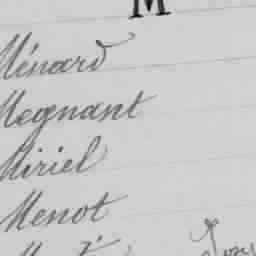 M
Ménard
Megnant
Miriel
Menot